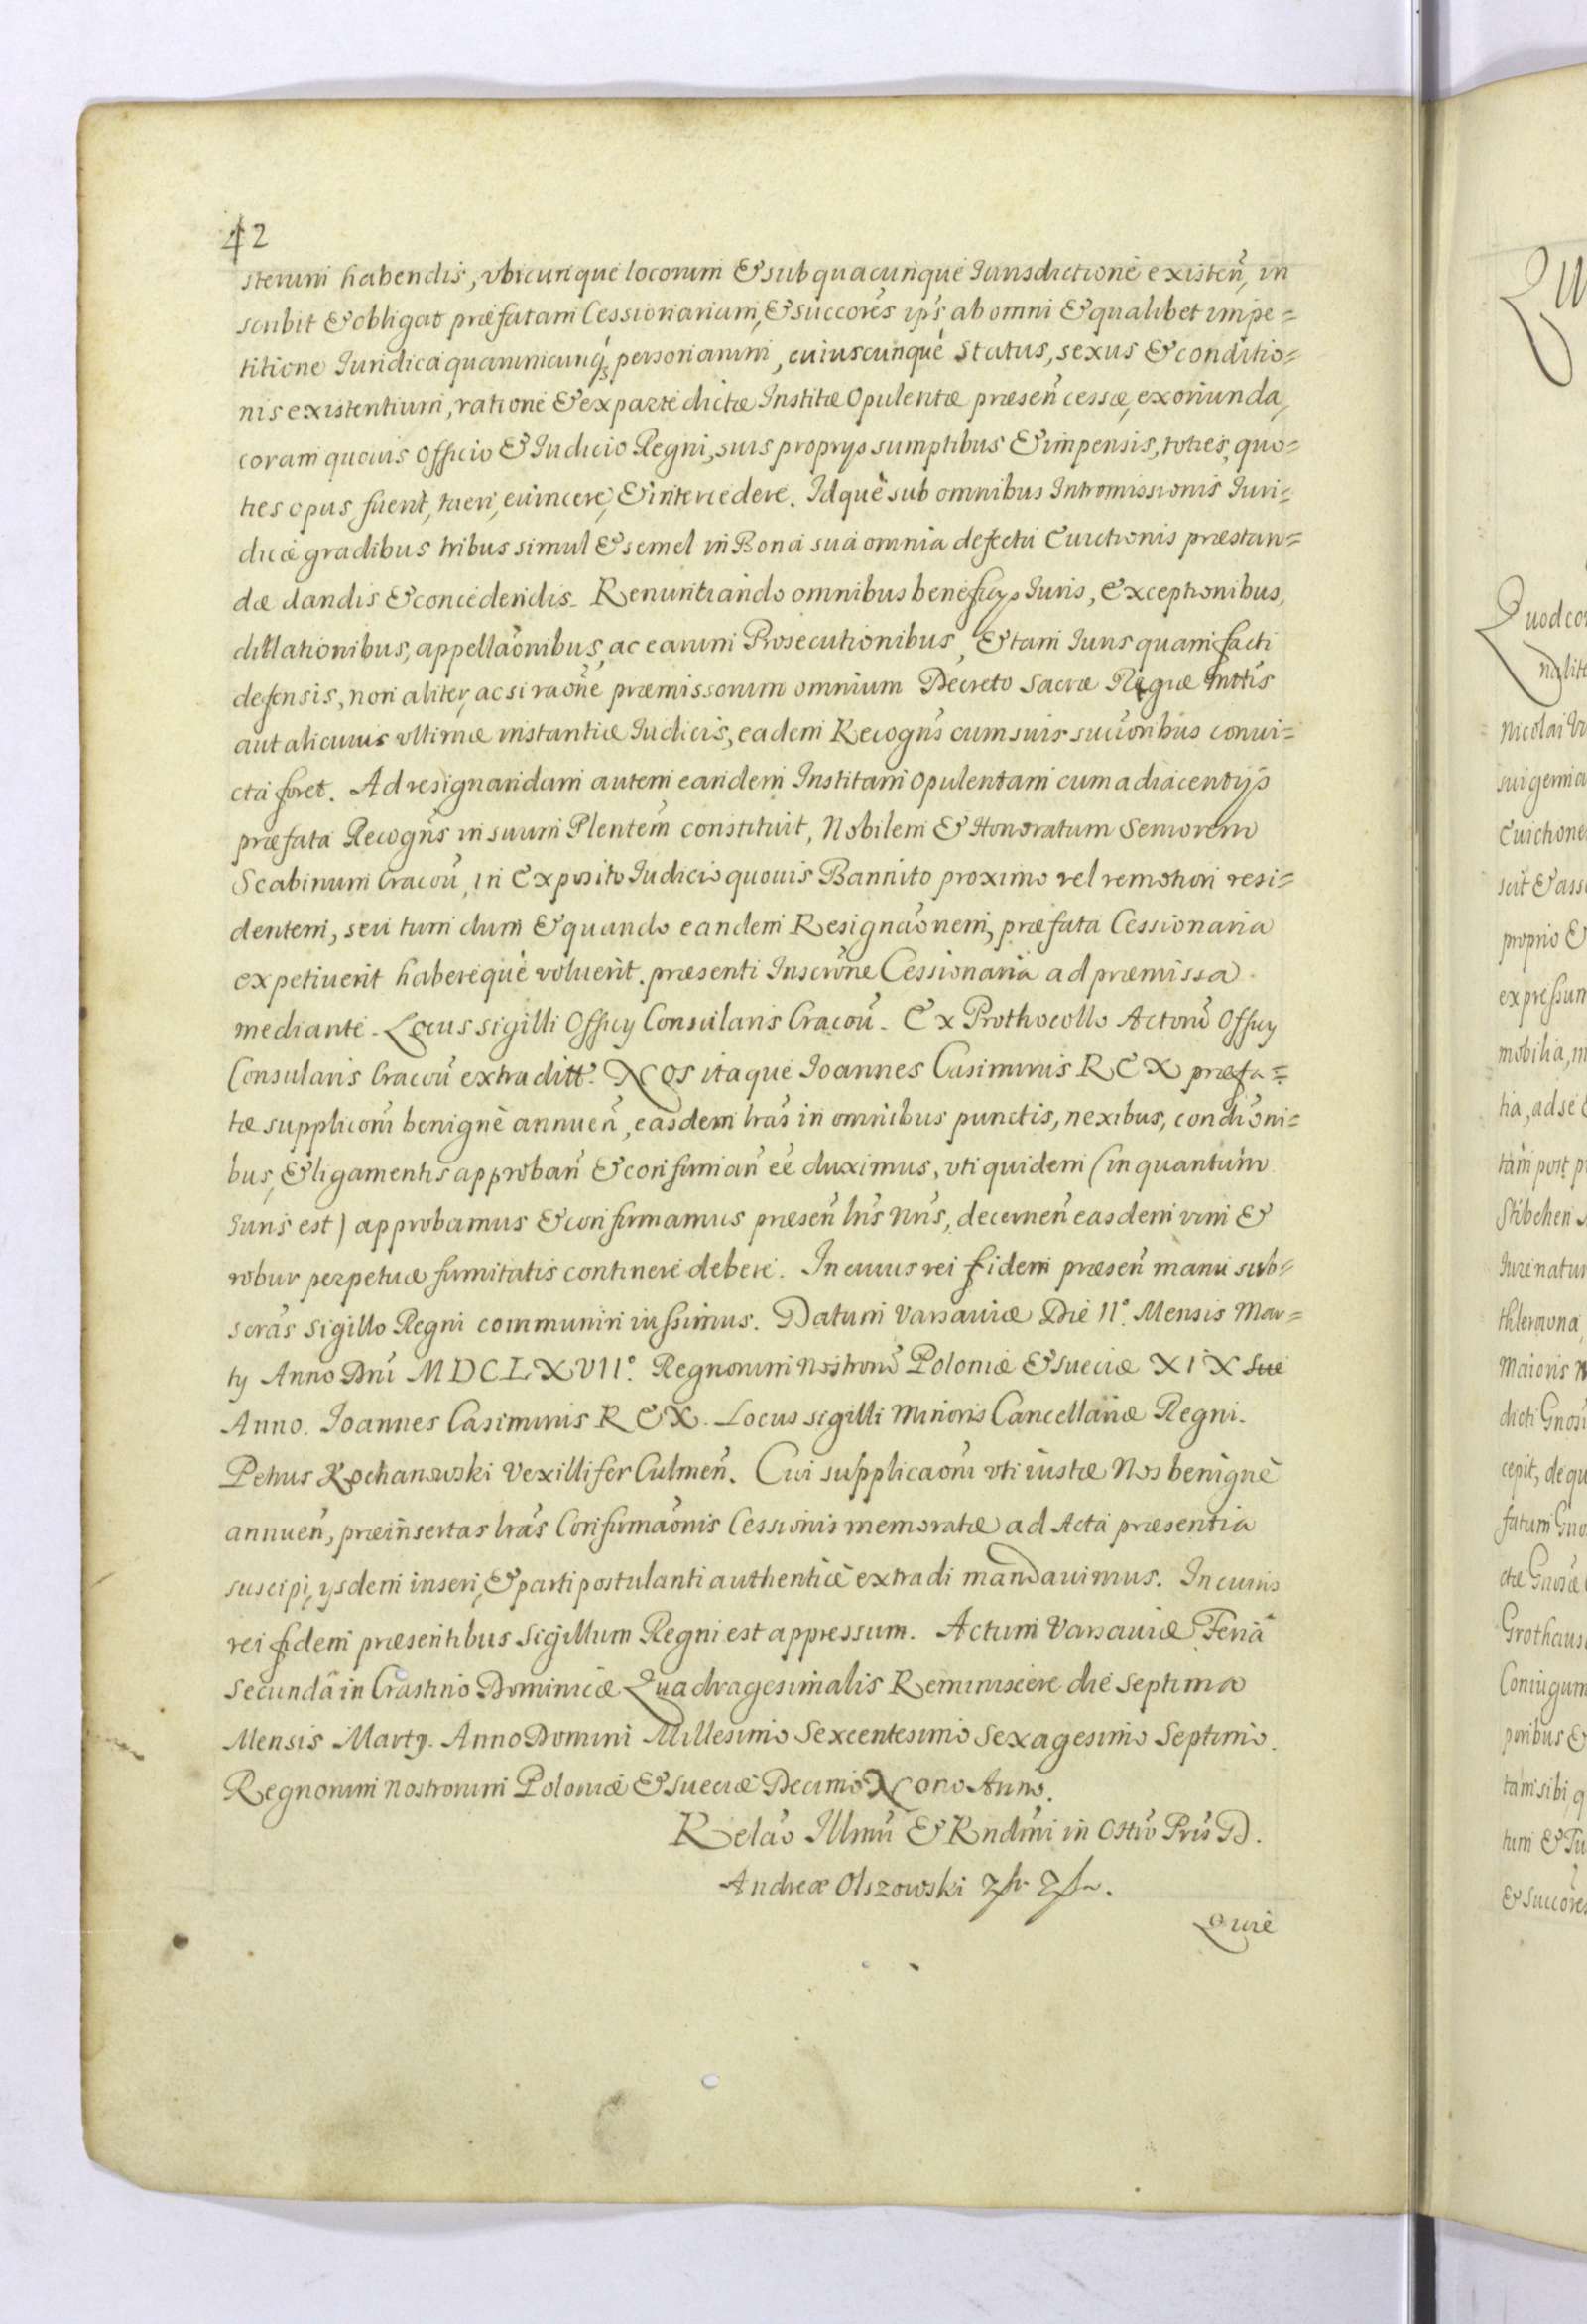 42
sterum habendis, vbicunque locorum & sub quacunque Iurisdictione existeñ, in
scribit & obligat præfatam Cessionariam, & succorẽs ips̃ ab omni & qualibet impe=
titione Iuridica quarumcunq; personarum, cuiuscunque status, sexus & conditio=
nis existentium, ratione & ex parte dictæ Institæ Opulentæ præseñ cessæ, exoriunda,
coram quouis Officio & Iudicio Regni, suis proprys sumptibus & impensis, toties, quo=
ties opus fuerit, tueri, euincere, & intercedere. Idquè sub omnibus Intromissionis Iuri=
dicæ gradibus tribus simul & semel in Bona sua omnia defectu Euictionis præstan=
dæ dandis & concedendis. Renuntiando omnibus beneficys Iuris, Exceptionibus,
dillationibus, appellaõnibus, ac earum Prosecutionibus, & tam Iuris quam facti
defensis, non aliter, ac si raõne præmissorum omnium Decreto Sacræ Regiæ Mttis
aut alicuius vltimæ instantiæ Iudicis, eadem Recogñs cum suis succoribus conui=
cta foret. Ad resignandam autem eandem Institam Opulentam cum adiacentijs
præfata Recogñs in suum Plentem constituit, Nobilem & Honoratum Seniorem
Scabinum Cracoũ, in Exposito Iudicio quouis Bannito proximo vel remotiori resi=
dentem, seu tum dum & quando eandem Resignaõnem, præfata Cessionaria
expetiuerit haberequè voluerit. præsenti Inscrõne Cessionaria ad præmissa
mediante. Locus sigilli Officy Consularis Cracoũ. Ex Prothocollo Actorũ Officy
Consularis Cracoũ extraditt. Nos itaque Ioannes Casimirus REX præfa=
tæ supplicoñi benignè annueñ, easdem lrãs in omnibus punctis, nexibus, condiõni=
bus, & ligamentis approbañ & confirmañ eẽ duximus, vti quidem (in quantum
Iuris est) approbamus & confirmamus præseñ lrĩs nr̃is, decerneñ easdem vim &
robur perpetuæ firmitatis continere debere. In cuius rei fidem præseñ manu sub=
scrãs sigillo Regni communiri iussimus. Datum Varsauiæ Die II°. Mensis Mar=
ty Anno Dnĩ MDCLXVII°. Regnorum Nostrorũ Poloniæ & Sueciæ XIX Sue
Anno. Ioannes Casimirus REX. Locus sigilli Minoris Cancellariæ Regni.
Petrus Kochanowski Vexillifer Culmeñ. Cui supplicaoñi vti iustæ Nos benignè
annueñ, præinsertas lrãs Confirmaõnis Cessionis memoratæ ad Acta præsentia
suscipi, ysdem inseri, & parti postulanti authenticè extradi mandauimus. In cuius
rei fidem præsentibus Sigillum Regni est appressum. Actum Varsauiæ Feriâ
Secundâ in Crastino Dominicæ Quadragesimalis Reminiscere die septima
Mensis Marty. Anno Domini Millesimo Sexcentesimo Sexagesimo Septimo.
Regnorum Nostrorum Poloniæ & Sueciæ Decimo Nono Anno.
Relaõ Illmĩ & Rndmĩ in Chtõ Prĩs D.
Andreæ Olszowski
Quiè